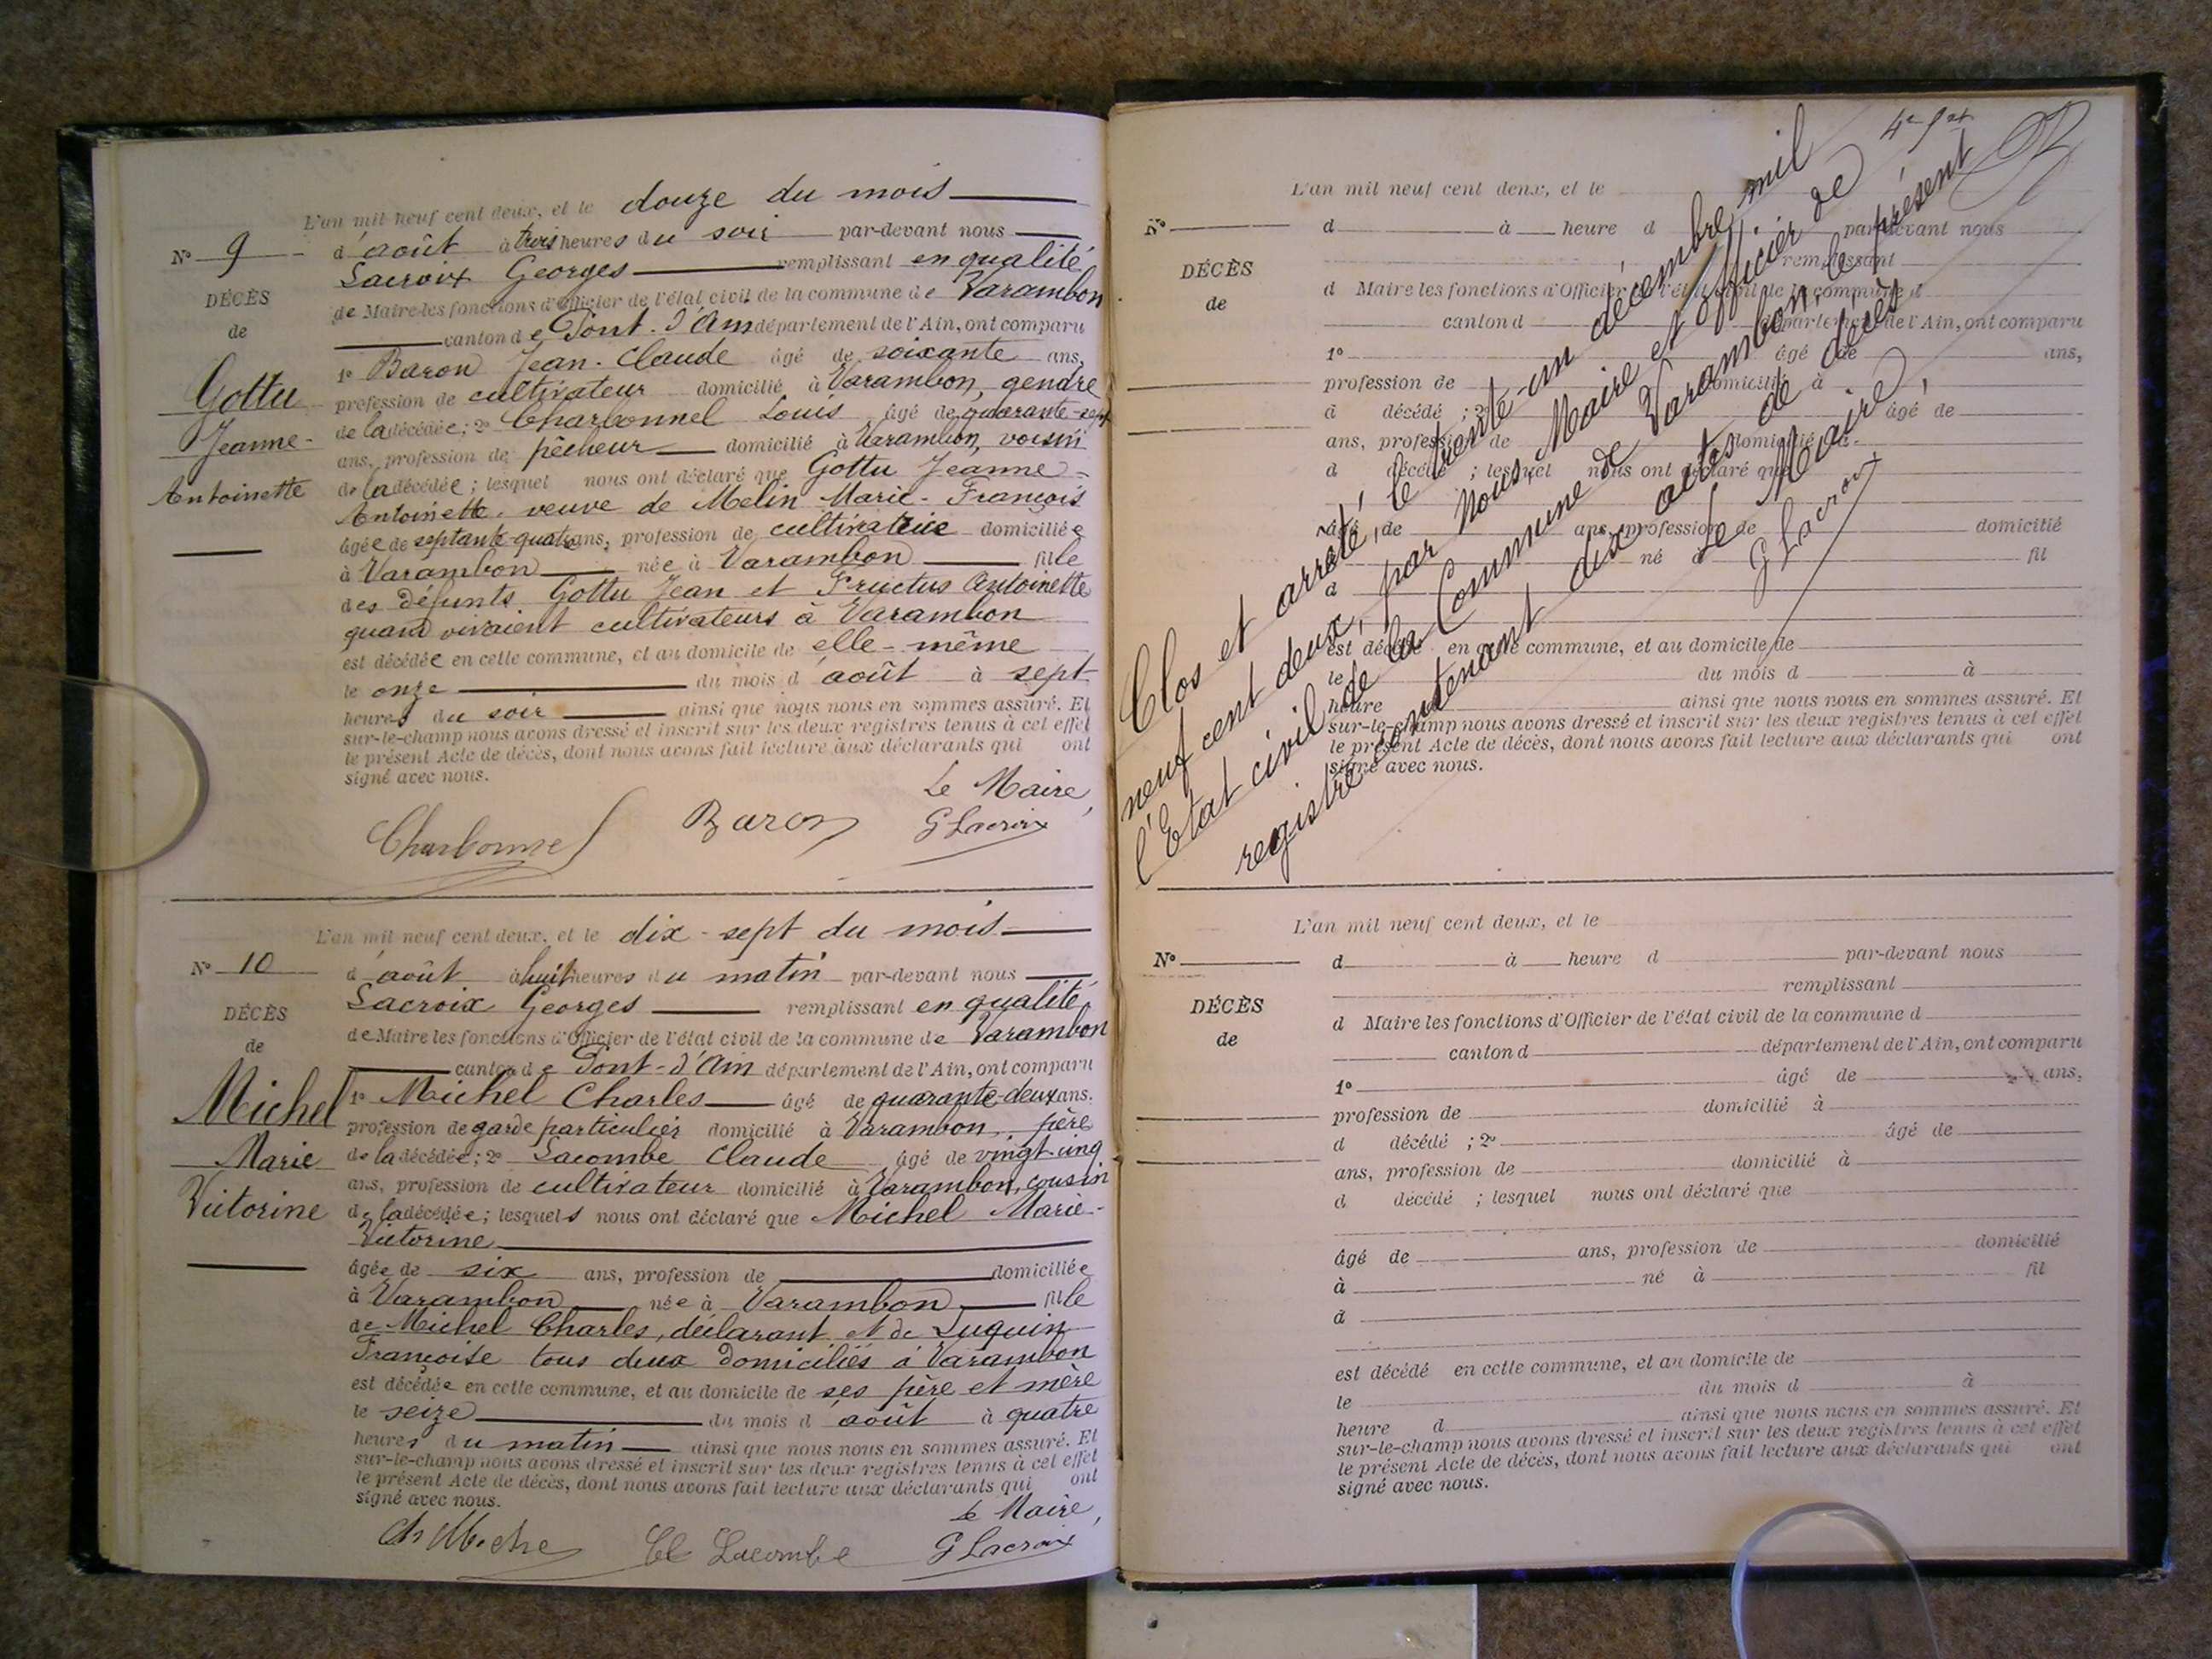 L'an mil neuf cent deux, et le douze du mois
N° 9 d'août à trois heures du soir par-devant nous
Lacroix Georges remplissant en qualité
DÉCÈS
de Maire les fonctions d'Officier de l'état civil de la commune de Varambon
de
canton de Pont-d'Ain département de l'Ain, ont comparu
1° Baron Jean-Claude âgé de soixante ans,
Gottu
profession de cultivateur domicilié à Varambon, gendre
de la décédée; 2° Charbonnel Louis âgé de quarante-sept
Jeanne-
ans, profession de pêcheur domicilié à Varambon, voisin
de la décédée; lesquel nous ont déclaré que Gottu Jeanne-
Antoinette
Antoinette, veuve de Melin Marie-François
âgée de septante-quatre ans, profession de cultivatrice domiciliée
à Varambon née à Varambon fille
des défunts Gottu Jean et Fructus Antoinette
quand vivaient cultivateurs à Varambon
est décédée en cette commune, et au domicile de elle-même
le onze du mois d'août à sept
heures du soir ainsi que nous nous en sommes assuré. Et
sur-le-champ nous avons dressé et inscrit sur les deux registres tenus à cet effet
le présent Acte de décès, dont nous avons fait lecture aux déclarants qui ont
signé avec nous.
Le Maire,
Charbonnel Baron G Lacroix
L'an mil neuf cent deux, et le dix-sept du mois
N° 10 d'août à huit heures du matin par-devant nous
Lacroix Georges remplissant en qualité
DÉCÈS
de Maire les fonctions d'Officier de l'état civil de la commune de Varambon
de
canton de Pont-d'Ain département de l'Ain, ont comparu
Michel
1° Michel Charles âgé de quarante-deux ans.
profession de garde particulier domicilié à Varambon, père
Marie
de la décédée; 2° Lacombe Claude âgé de vingt-cinq
ans, profession de cultivateur domicilié à Varambon, cousin
Victorine
de la décédée; lesquels nous ont déclaré que Michel Marie-
Victorine
âgée de six ans, profession de domiciliée
à Varambon née à Varambon fille
de Michel Charles, déclarant et de Luguin
Françoise tous deux domiciliés à Varambon
est décédée en cette commune, et au domicile de ses père et mère
le seize du mois d'août à quatre
heures du matin ainsi que nous nous en sommes assuré. Et
sur-le-champ nous avons dressé et inscrit sur les deux registres tenus à cet effet
le présent Acte de décès, dont nous avons fait lecture aux déclarants qui ont
signé avec nous.
Le Maire,
Ch Michel Cl Lacombe G Lacroix
Clos et arrêté, le trente-un décembre mil
neuf cent deux, par Nous, Maire et officier de
l'Etat civil de la Commune de Varambon, le présent
registre contenant dix actes de décès
Le Maire,
G Lacroix
L'an mil neuf cent deux, et le
N° d à heure d par-devant nous
remplissant
DÉCÈS
d Maire les fonctions d'Officier de l'état civil de la commune d
de
canton d département de l'Ain, ont comparu
1° âgé de ans,
profession de domicilié à
d décédé ; 2° âgé de
ans, profession de domicilié à
d décédé ; lesquel nous ont déclaré que
âgé de ans, profession de domicilié
à né à fil
d
est décédé en cette commune, et au domicile de
le du mois d à
heure ainsi que nous nous en sommes assuré. Et
sur-le-champ nous avons dressé et inscrit sur les deux registres tenus à cet effet
le présent Acte de décès, dont nous avons fait lecture aux déclarants qui ont
signé avec nous.
L'an mil neuf cent deux, et le
N° d à heure d par-devant nous
remplissant
DÉCÈS
d Maire les fonctions d'Officier de l'état civil de la commune d
de
canton d département de l'Ain, ont comparu
1° âgé de ans,
profession de domicilié à
d décédé ; 2° âgé de
ans, profession de domicilié à
d décédé ; lesquel nous ont déclaré que
âgé de ans, profession de domicilié
à né à fil
d
est décédé en cette commune, et au domicile de
le du mois d à
heure d ainsi que nous nous en sommes assuré. Et
sur-le-champ nous avons dressé et inscrit sur les deux registres tenus à cet effet
le présent Acte de décès, dont nous avons fait lecture aux déclarants qui ont
signé avec nous.